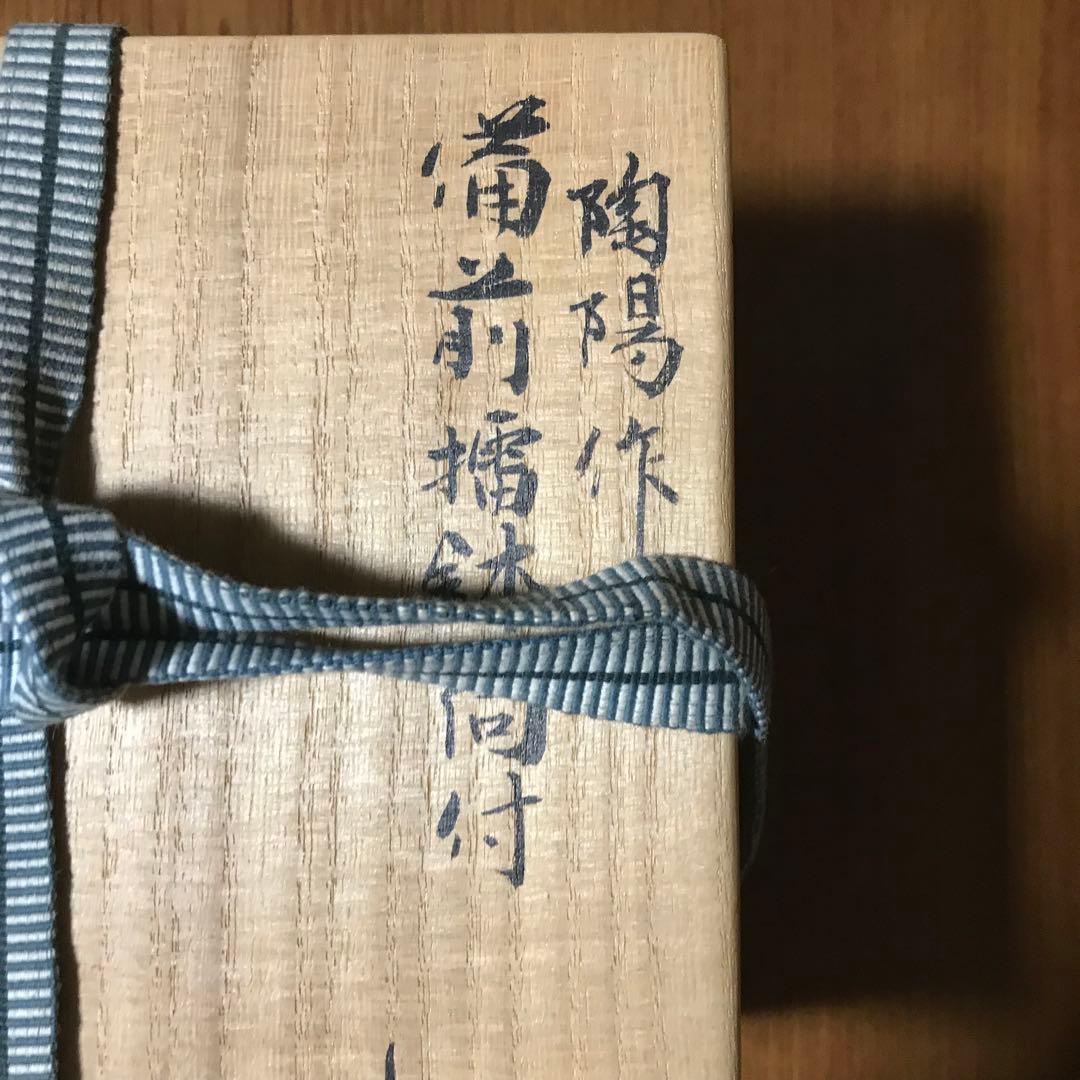 陶陽作
備前擂鉢向付